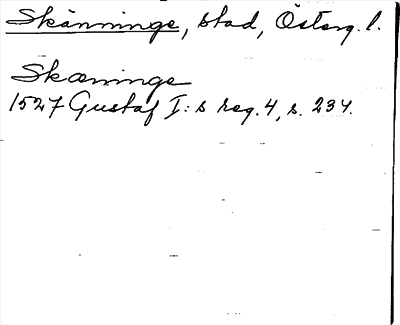 Skänninge, stad, Österg. l.
Skæninge
1527 Gustaf I:s reg. 4, s. 234.